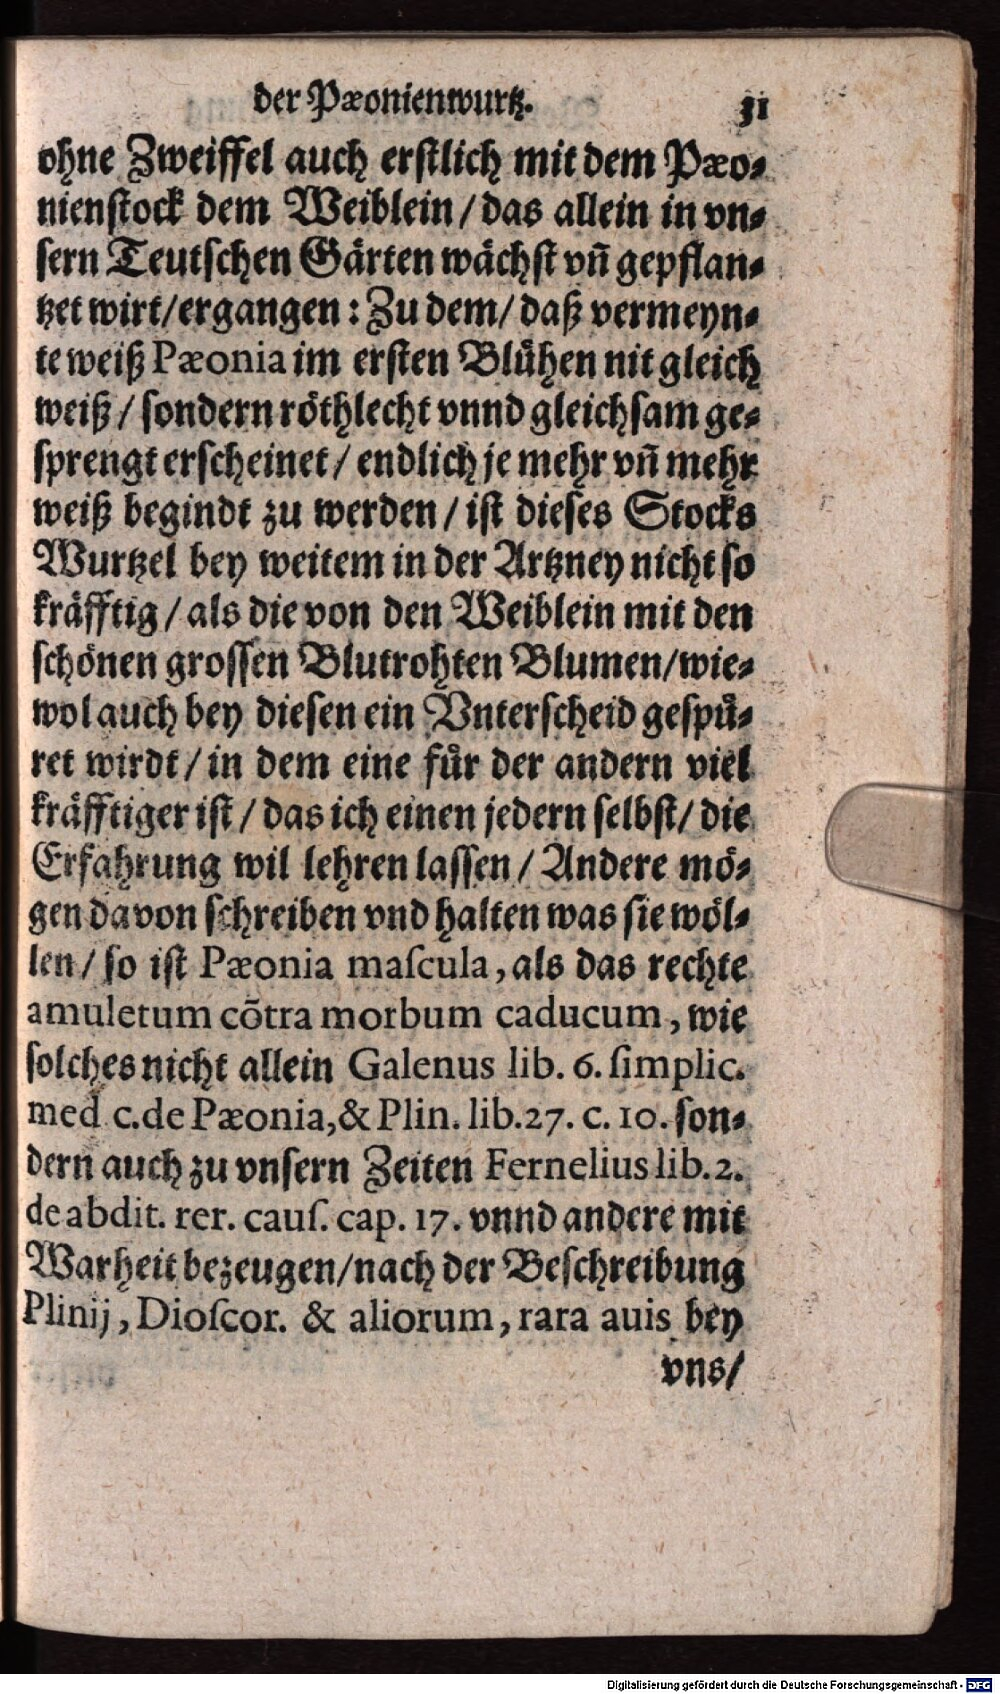 der Pæonienwurtz. 31
ohne Zweiffel auch erſtlich mit dem Pæo-
nienſtock dem Weiblein / das allein in vn-
ſern Teutſchen Gärten wächſt vñ gepflan-
tzet wirt / ergangen : Zu dem / daß vermeyn-
te weiß Pæonia im erſten Blühen nit gleich
weiß / ſondern röthlecht vnnd gleichſam ge-
ſprengt erſcheinet / endlich je mehr vñ mehr
weiß begindt zu werden / iſt dieſes Stocks
Wurtzel bey weitem in der Artzney nicht ſo
kräfftig / als die von den Weiblein mit den
ſchönen groſſen Blutrohten Blumen / wie-
wol auch bey dieſen ein Vnterſcheid geſpü-
ret wirdt / in dem eine für der andern viel
kräfftiger iſt / das ich einen jedern ſelbſt / die
Erfahrung wil lehren laſſen / Andere mö-
gen davon ſchreiben vnd halten was ſie wöl-
len / ſo iſt Pæonia maſcula, als das rechte
amuletum cõtra morbum caducum, wie
ſolches nicht allein Galenus lib. 6. ſimplic.
med c. de Pæonia, & Plin. lib. 27. c. 10. ſon-
dern auch zu vnſern Zeiten Fernelius lib. 2.
de abdit. rer. cauſ. cap. 17. vnnd andere mit
Warheit bezeugen / nach der Beſchreibung
Plinij, Dioſcor. & aliorum, rara auis bey
vns /
Digitalisierung gefördert durch die Deutsche Forschungsgemeinschaft - DFG